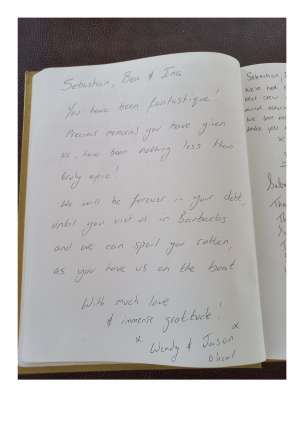 Sebastian, Bea & Ina
You have been fantastique!
Precious memories you have given
us, have been nothing less than
truly epic!
We will be forever in your debt,
until you visit us in Barbados
and we can spoil you rotten,
as you have us on the boat
With much love
& immense gratitude!
x Wendy & Jason x
Sebastian,
We've had
best crew